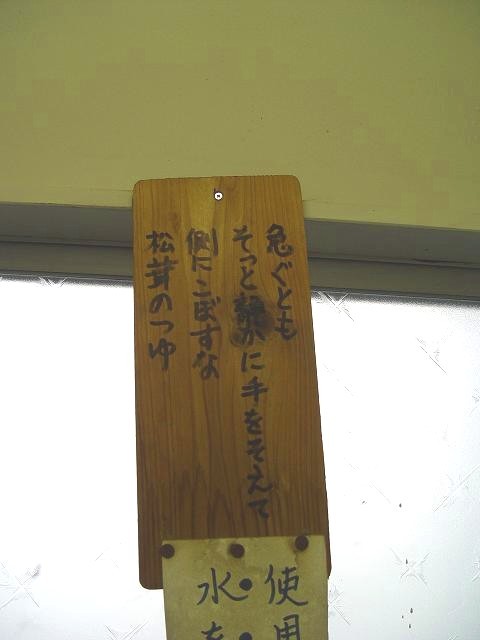 急ぐとも
そっと静かに手をそえて
側にこぼすな
松茸のつゆ
使用
水を